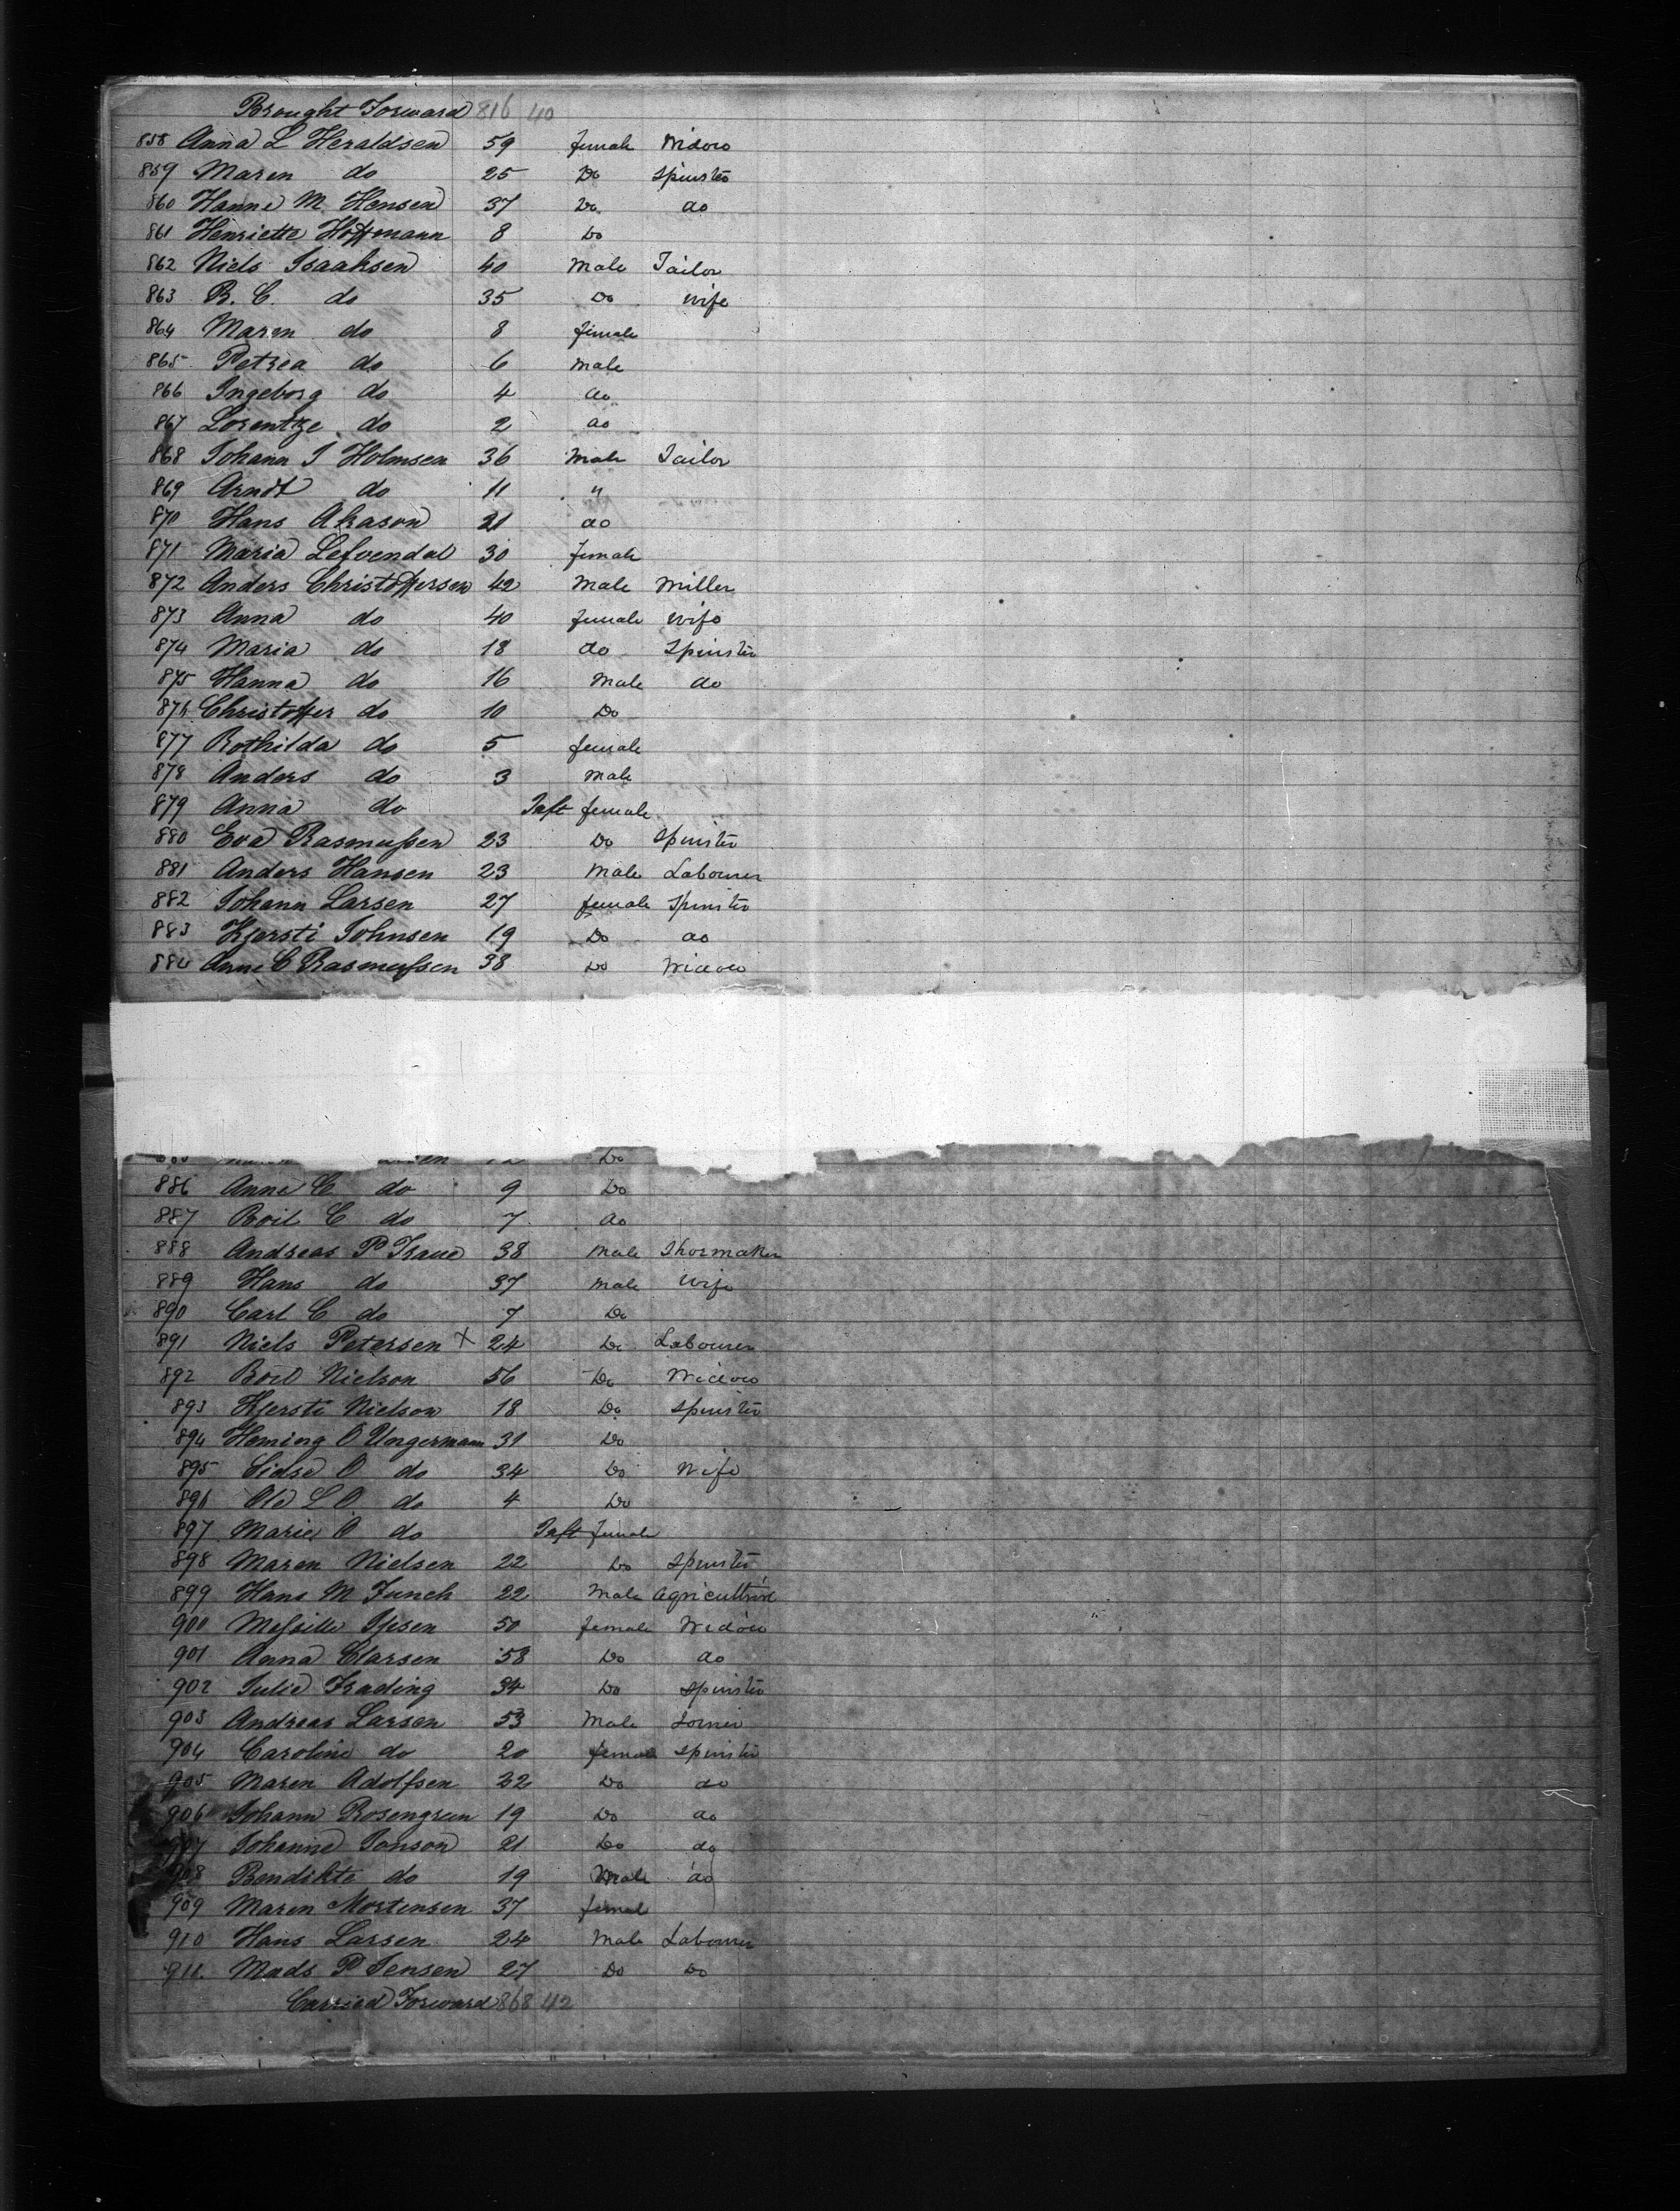 Brought Forward 816 40
858 Anna L Heraldsen 59 female Widow
859 Maren do 25 Do Spinster
860 Hanne M Hansen 37 Do do
861 Henriette Hoffmann 8 Do
862 Niels Isaaksen 40 Male Tailor
863 B. C. do 35 Do wife
864 Maren do 8 female
865 Petrea do 6 Male
866 Ingeborg do 4 do
867 Lorentze do 2 do
868 Johann J Holmsen 36 Male Tailor
869 Arndt do 11 "
870 Hans Akason 21 do
871 Maria Lefvendal 30 female
872 Anders Christoffersen 42 Male Miller
873 Anna do 40 female wife
874 Maria do 18 do Spinster
875 Hanna do 16 Male do
876 Christoffer do 10 Do
877 Bothilda do 5 female
878 Anders do 3 Male
879 Anna do Inft female
880 Eva Rasmussen 23 Do Spinster
881 Anders Hansen 23 Male Labourer
882 Johann Larsen 27 female Spinster
883 Kjersti Johnsen 19 Do do
884 Anne C Rasmussen 38 Do Widow
Do
886 Anne C do 9 Do
887 Boil C do 7 do
888 Andreas P Traue 38 Male Shoemaker
889 Hans do 37 Male Wife
890 Carl C do 7 Do
891 Niels Petersen X 24 Do Labourer
892 Boil Nielson 56 Do Widow
893 Kjersti Nielson 18 Do Spinster
894 Heming O Ungermann 31 Do
895 Sidse O do 34 Do Wife
896 Ole L O do 4 Do
897 Marie O do Inft female
898 Maren Nielsen 22 Do Spinster
899 Hans M Funch 22 Male
900 50 female Widow
901 Anna Clarsen 58 Do do
902 Julie Frading 34 Do Spinster
903 Andreas Larsen 53 Male
904 Caroline do 20 female Spinster
905 Maren Adolfsen 22 Do do
906 Johann Rosengreen 19 Do do
907 Johanne Jonson 21 Do do
908 Bendikte do 19 Male do
909 Maren Mortensen 37 female
910 Hans Larsen 24 Male Labourer
911. Mads P Jensen 27 Do Do
Carried Forward 868 42